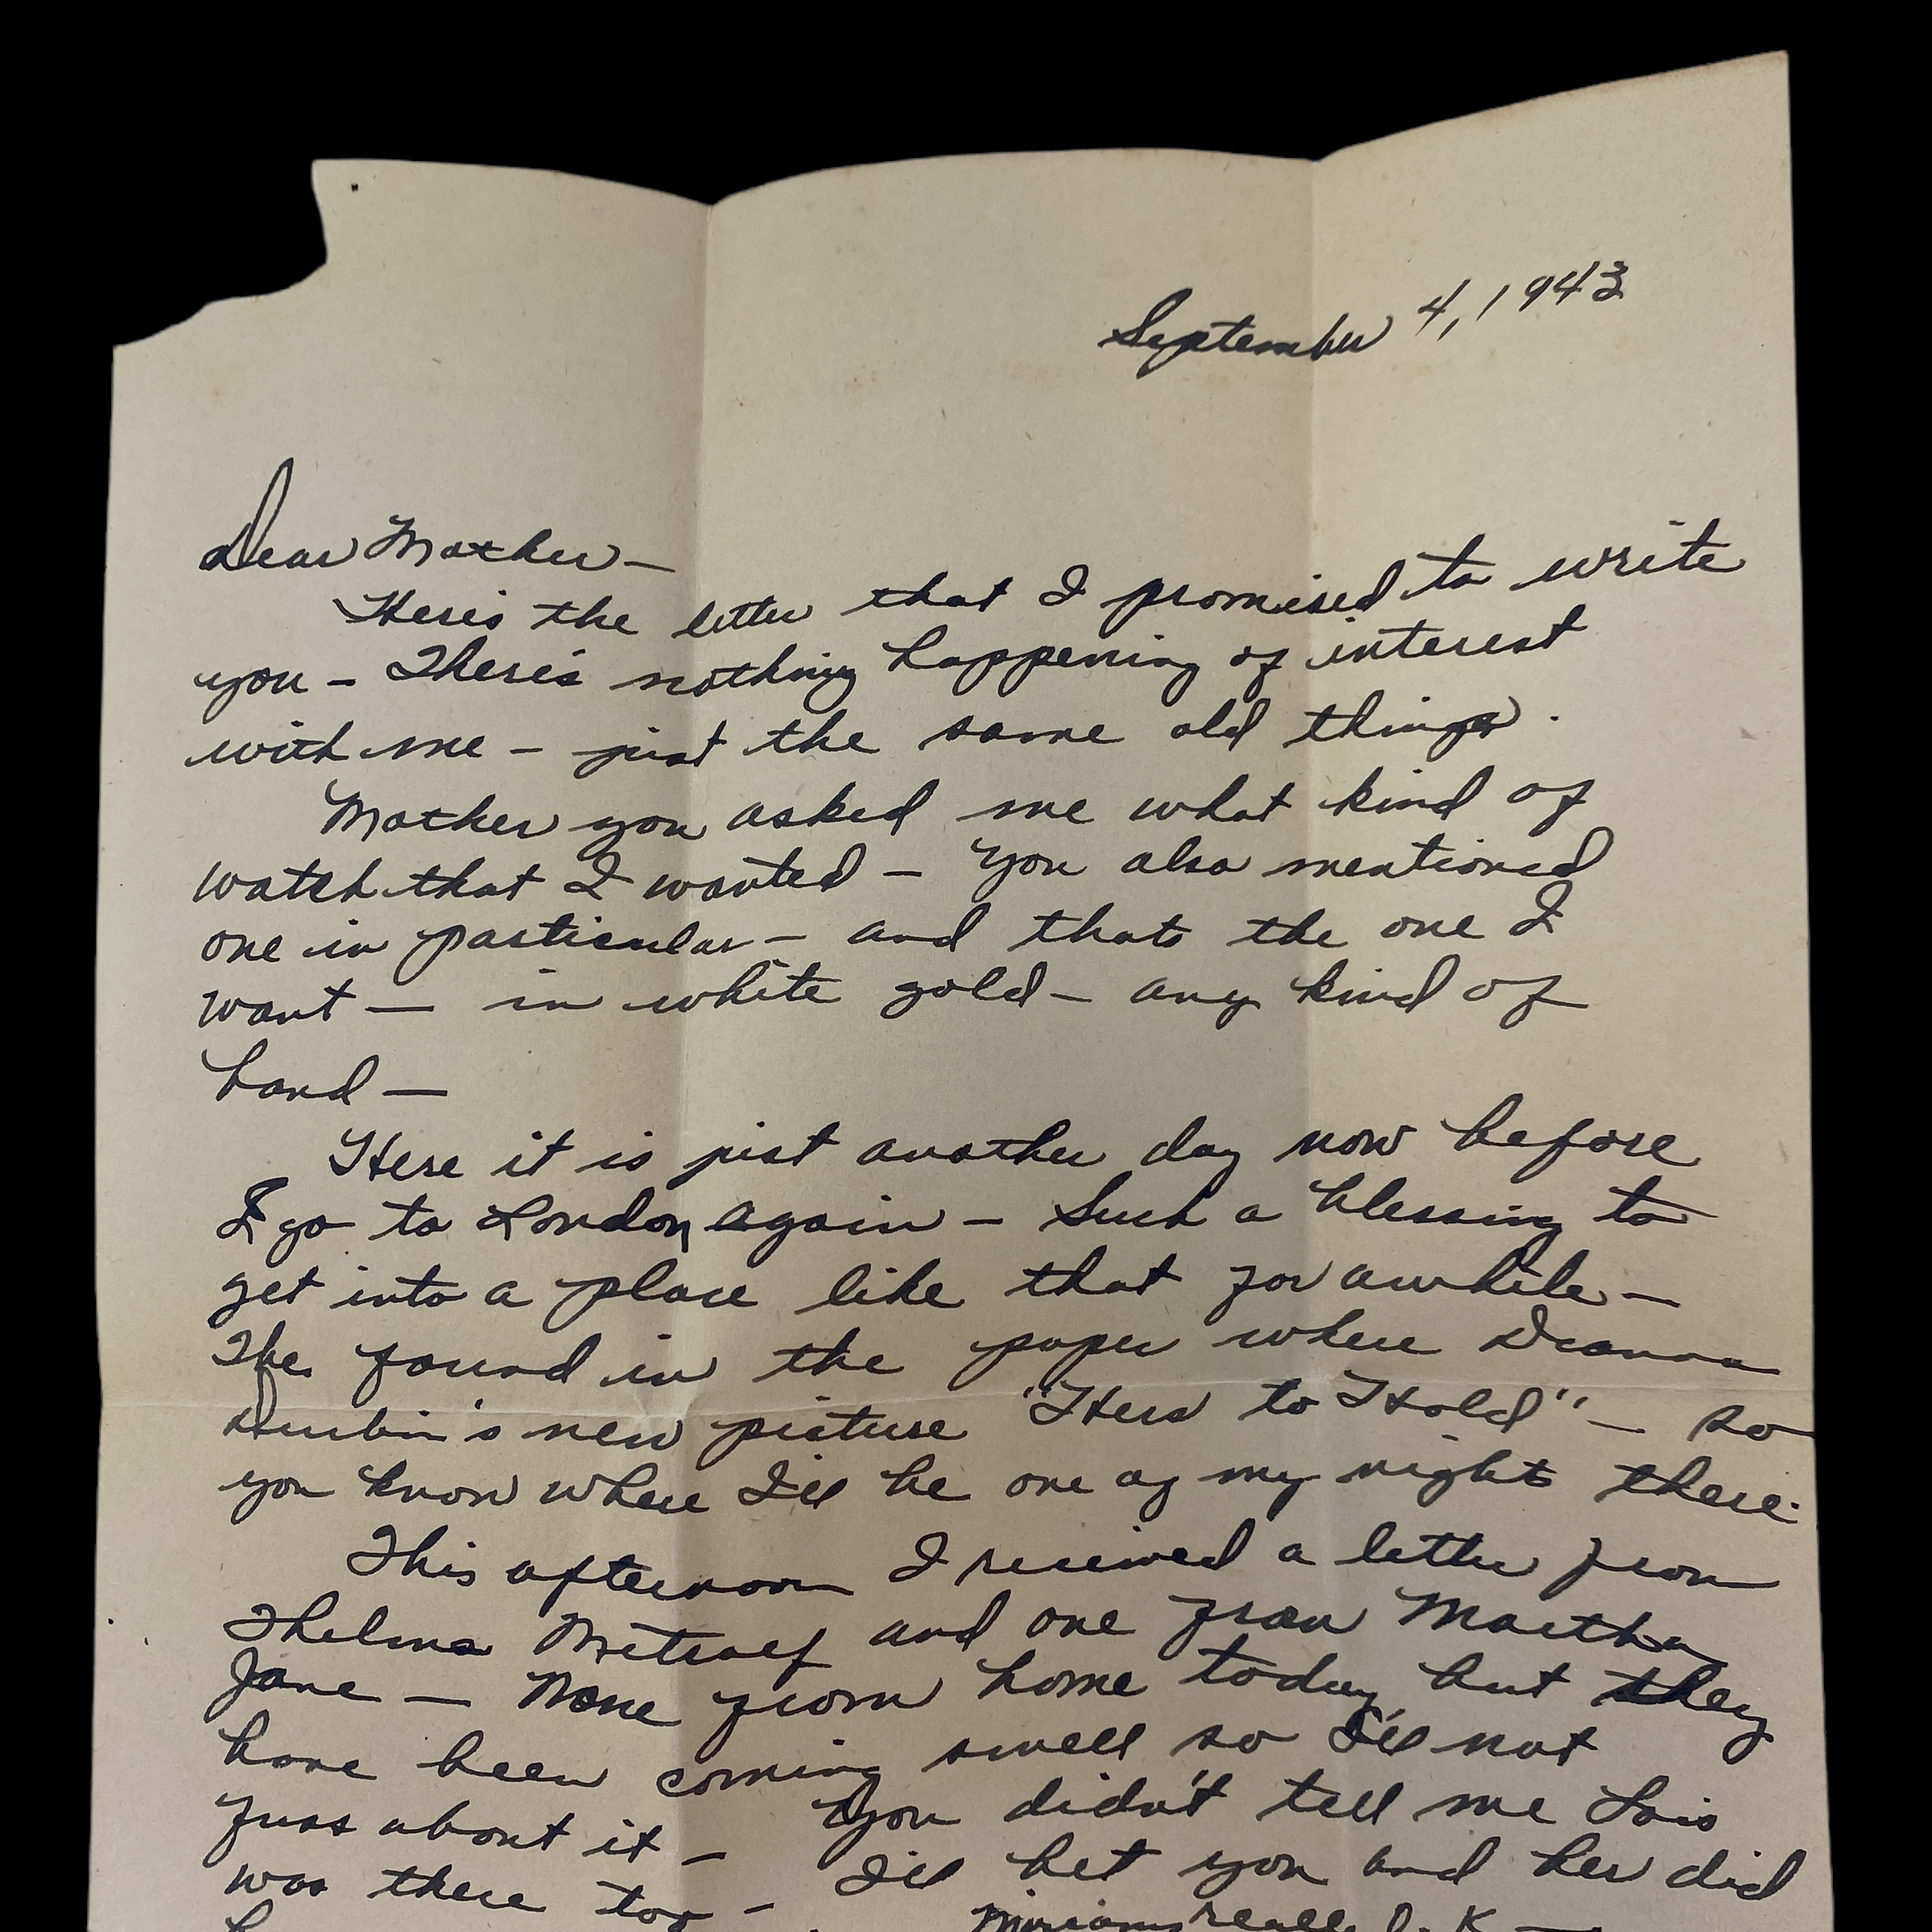 September 4, 1943
Dear Mother —
Here's the letter that I promised to write
you — There's nothing happening of interest
with me — just the same old things.
Mother you asked me what kind of
watch that I wanted — You also mentioned
one in particular — and thats the one I
want — in white gold — any kind of
band —
Here it is just another day now before
I go to London again — Such a blessing to
get into a place like that for awhile —
I've found in the paper where Deanna
Durbin's new picture "Hers to Hold" — so
you know where I'll be one of my nights there.
This afternoon I received a letter from
Thelma Metcalf and one from Martha
Jane — None from home today but they
have been coming swell so I'll not
fuss about it — You didn't tell me Lois
was there too — I'll bet you and her did
Miriams really O.K. —